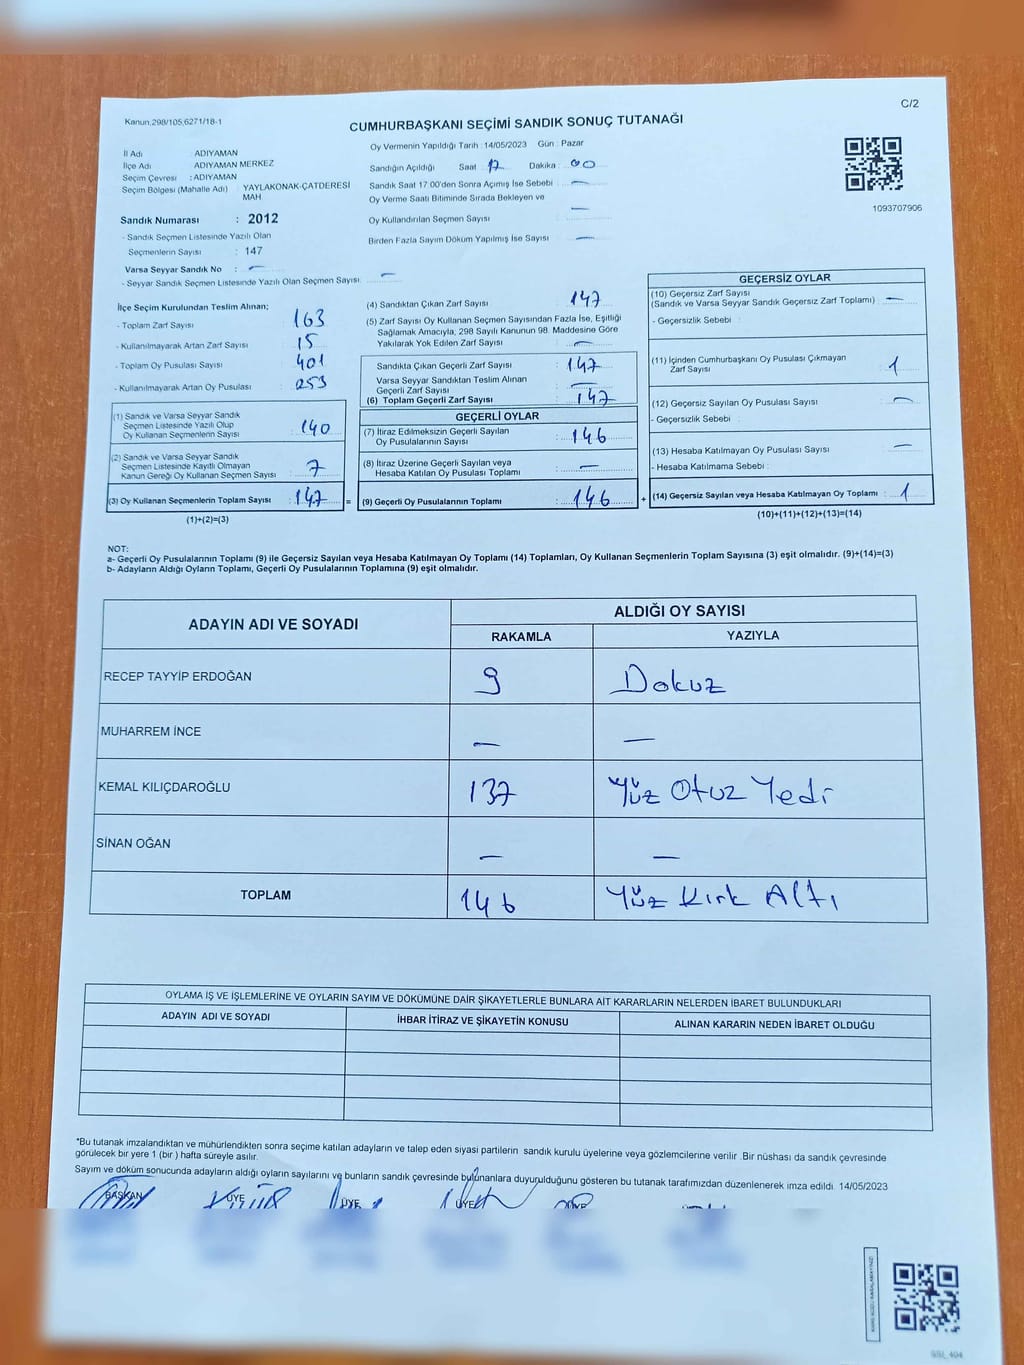 C/2
Kanun,298/105,6271/18-1
CUMHURBAŞKANI SEÇİMİ SANDIK SONUÇ TUTANAĞI
İl Adı : ADIYAMAN
İlçe Adı : ADIYAMAN MERKEZ
Seçim Çevresi : ADIYAMAN
Seçim Bölgesi (Mahalle Adı) : YAYLAKONAK-ÇATDERESİ MAH
Sandık Numarası : 2012
- Sandık Seçmen Listesinde Yazılı Olan
Seçmenlerin Sayısı : 147
Varsa Seyyar Sandık No : —
- Seyyar Sandık Seçmen Listesinde Yazılı Olan Seçmen Sayısı: —
Oy Vermenin Yapıldığı Tarih : 14/05/2023 Gün : Pazar
Sandığın Açıldığı Saat : 17 Dakika : 00
Sandık Saat 17:00'den Sonra Açımış İse Sebebi : —
Oy Verme Saati Bitiminde Sırada Bekleyen ve
Oy Kullandırılan Seçmen Sayısı : —
Birden Fazla Sayım Döküm Yapılmış İse Sayısı : —
1093707906
İlçe Seçim Kurulundan Teslim Alınan;
- Toplam Zarf Sayısı : 163
- Kullanılmayarak Artan Zarf Sayısı : 15
- Toplam Oy Pusulası Sayısı : 401
- Kullanılmayarak Artan Oy Pusulası : 253
(1) Sandık ve Varsa Seyyar Sandık
Seçmen Listesinde Yazılı Olup
Oy Kullanan Seçmenlerin Sayısı : 140
(2) Sandık ve Varsa Seyyar Sandık
Seçmen Listesinde Kayıtlı Olmayan
Kanun Gereği Oy Kullanan Seçmen Sayısı : 7
(3) Oy Kullanan Seçmenlerin Toplam Sayısı : 147 =
(1)+(2)=(3)
(4) Sandıktan Çıkan Zarf Sayısı : 147
(5) Zarf Sayısı Oy Kullanan Seçmen Sayısından Fazla İse, Eşitliği
Sağlamak Amacıyla, 298 Sayılı Kanunun 98. Maddesine Göre
Yakılarak Yok Edilen Zarf Sayısı : —
Sandıkta Çıkan Geçerli Zarf Sayısı : 147
Varsa Seyyar Sandıktan Teslim Alınan
Geçerli Zarf Sayısı : —
(6) Toplam Geçerli Zarf Sayısı : 147
GEÇERLİ OYLAR
(7) İtiraz Edilmeksizin Geçerli Sayılan
Oy Pusulalarının Sayısı : 146
(8) İtiraz Üzerine Geçerli Sayılan veya
Hesaba Katılan Oy Pusulası Toplamı : —
(9) Geçerli Oy Pusulalarının Toplamı : 146 +
GEÇERSİZ OYLAR
(10) Geçersiz Zarf Sayısı
(Sandık ve Varsa Seyyar Sandık Geçersiz Zarf Toplamı) : —
- Geçersizlik Sebebi :
(11) İçinden Cumhurbaşkanı Oy Pusulası Çıkmayan
Zarf Sayısı : 1
(12) Geçersiz Sayılan Oy Pusulası Sayısı : —
- Geçersizlik Sebebi :
(13) Hesaba Katılmayan Oy Pusulası Sayısı : —
- Hesaba Katılmama Sebebi :
(14) Geçersiz Sayılan veya Hesaba Katılmayan Oy Toplamı : 1
(10)+(11)+(12)+(13)=(14)
NOT:
a- Geçerli Oy Pusulalarının Toplamı (9) ile Geçersiz Sayılan veya Hesaba Katılmayan Oy Toplamı (14) Toplamları, Oy Kullanan Seçmenlerin Toplam Sayısına (3) eşit olmalıdır. (9)+(14)=(3)
b- Adayların Aldığı Oyların Toplamı, Geçerli Oy Pusulalarının Toplamına (9) eşit olmalıdır.
ADAYIN ADI VE SOYADI
ALDIĞI OY SAYISI
RAKAMLA YAZIYLA
RECEP TAYYİP ERDOĞAN 9 Dokuz
MUHARREM İNCE — —
KEMAL KILIÇDAROĞLU 137 Yüz Otuz Yedi
SİNAN OĞAN — —
TOPLAM 146 Yüz Kırk Altı
OYLAMA İŞ VE İŞLEMLERİNE VE OYLARIN SAYIM VE DÖKÜMÜNE DAİR ŞİKAYETLERLE BUNLARA AİT KARARLARIN NELERDEN İBARET BULUNDUKLARI
ADAYIN ADI VE SOYADI İHBAR İTİRAZ VE ŞİKAYETİN KONUSU ALINAN KARARIN NEDEN İBARET OLDUĞU
*Bu tutanak imzalandıktan ve mühürlendikten sonra seçime katılan adayların ve talep eden siyasi partilerin sandık kurulu üyelerine veya gözlemcilerine verilir .Bir nüshası da sandık çevresinde
görülecek bir yere 1 (bir ) hafta süreyle asılır.
Sayım ve döküm sonucunda adayların aldığı oyların sayılarını ve bunların sandık çevresinde bulunanlara duyurulduğunu gösteren bu tutanak tarafımızdan düzenlenerek imza edildi. 14/05/2023
BAŞKAN ÜYE ÜYE ÜYE ÜYE